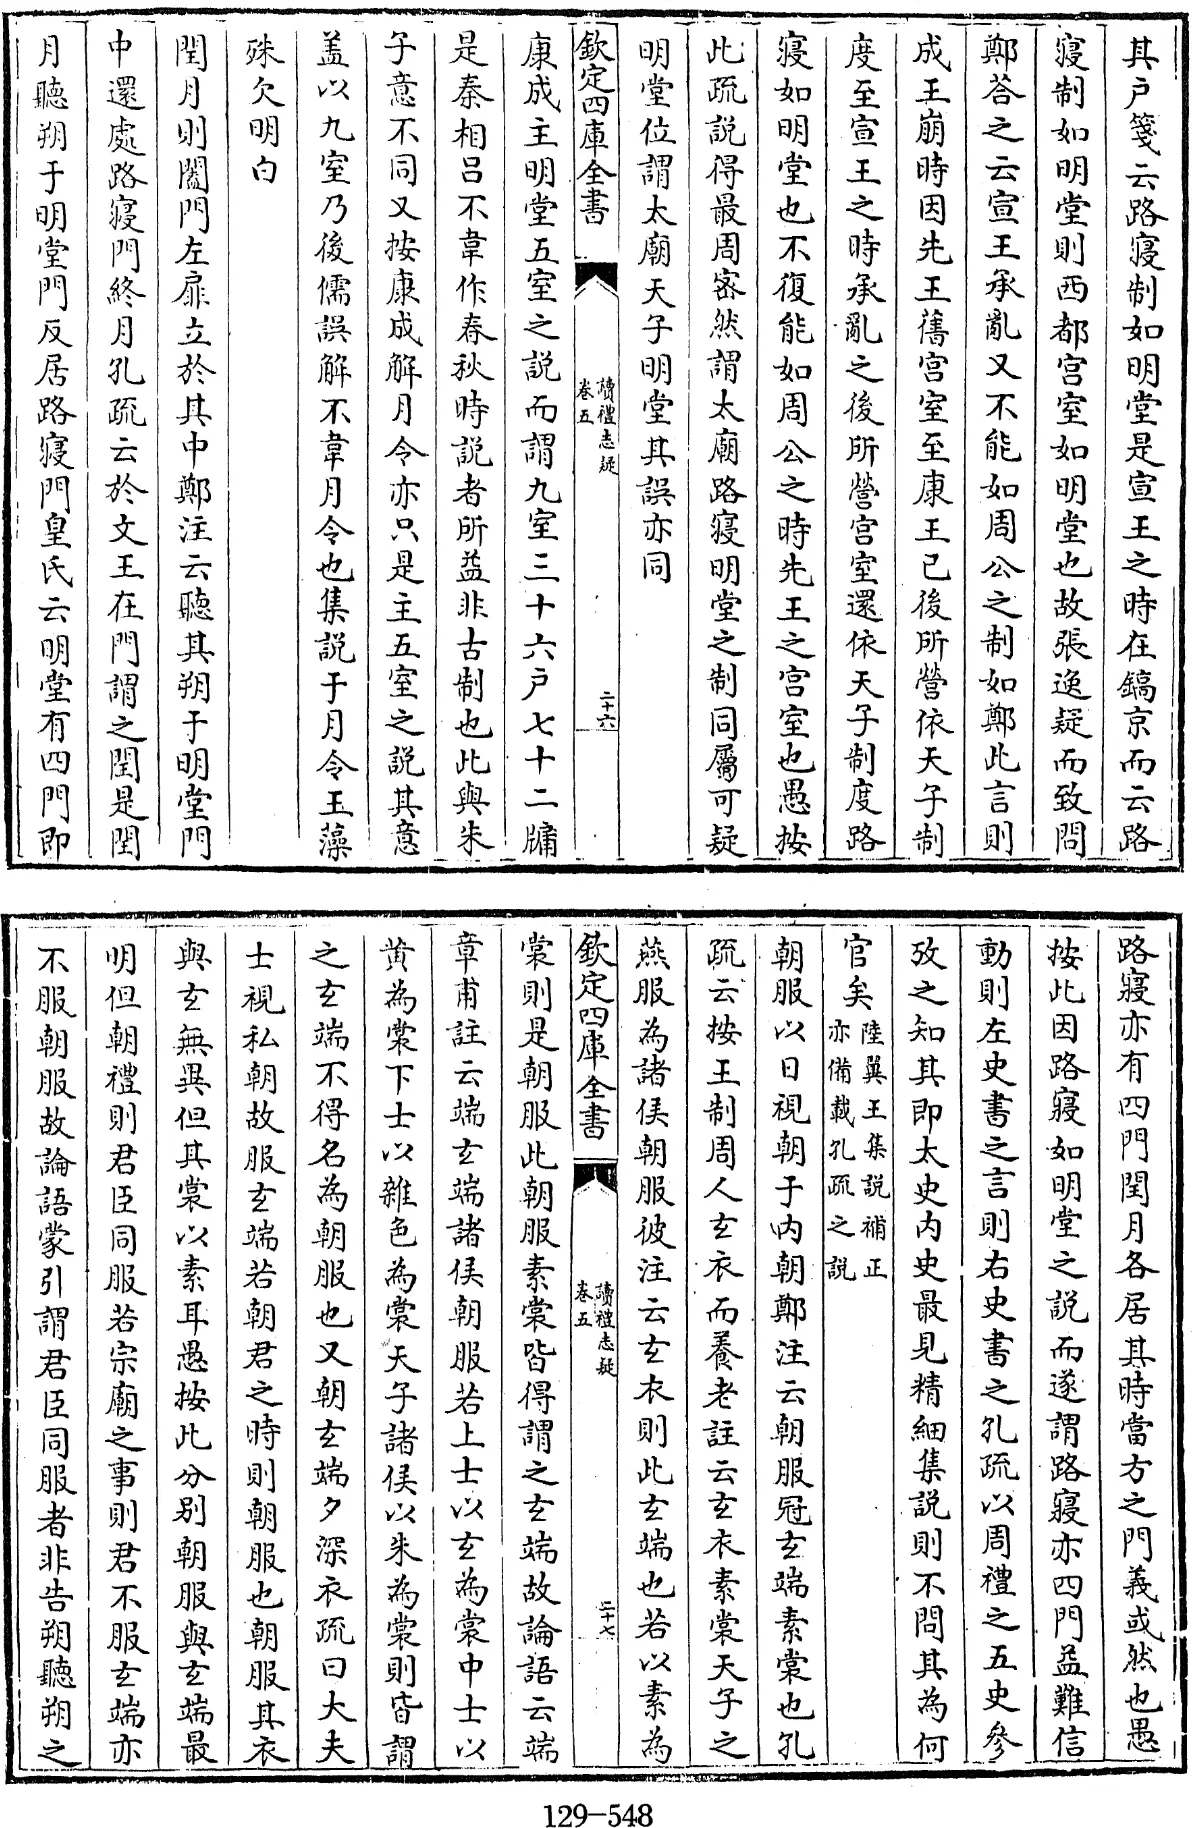 其户箋云路寝制如明堂是宣王之時在鎬京而云路
寝制如明堂則西都宫室如明堂也故張逸疑而致問
鄭荅之云宣王承亂又不能如周公之制如鄭此言則
成王崩時因先王舊宫室至康王已後所營依天子制
度至宣王之時承亂之後所營宫室還依天子制度路
寝如明堂也不復能如周公之時先王之宫室也愚按
此疏説得最周宻然謂太廟路寝明堂之制同屬可疑
明堂位謂太廟天子明堂其誤亦同
欽定四庫全書
讀禮志疑
卷五
二十六
康成主明堂五室之説而謂九室三十六户七十二牖
是秦相吕不韋作春秋時説者所益非古制也此與朱
子意不同又按康成解月令亦只是主五室之説其意
盖以九室乃後儒誤解不韋月令也集説于月令玉藻
殊欠明白
閏月則闔門左扉立於其中鄭注云聽其朔于明堂門
中還處路寝門終月孔疏云於文王在門謂之閏是閏
月聽朔于明堂門反居路寝門皇氏云明堂有四門即
路寝亦有四門閏月各居其時當方之門義或然也愚
按此因路寝如明堂之説而遂謂路寝亦四門益難信
動則左史書之言則右史書之孔疏以周禮之五史參
攷之知其即太史内史最見精細集説則不問其為何
官矣陸翼王集説補正
亦備載孔疏之説
朝服以日視朝于内朝鄭注云朝服冠玄端素裳也孔
疏云按王制周人玄衣而養老註云玄衣素裳天子之
燕服為諸侯朝服彼注云玄衣則此玄端也若以素為
欽定四庫全書
讀禮志疑
卷五
二十七
裳則是朝服此朝服素裳皆得謂之玄端故論語云端
章甫註云端玄端諸侯朝服若上士以玄為裳中士以
黄為裳下士以雜色為裳天子諸侯以朱為裳則皆謂
之玄端不得名為朝服也又朝玄端夕深衣疏曰大夫
士視私朝故服玄端若朝君之時則朝服也朝服其衣
與玄無異但其裳以素耳愚按此分别朝服與玄端最
明但朝禮則君臣同服若宗廟之事則君不服玄端亦
不服朝服故論語蒙引謂君臣同服者非告朔聽朔之
129-548